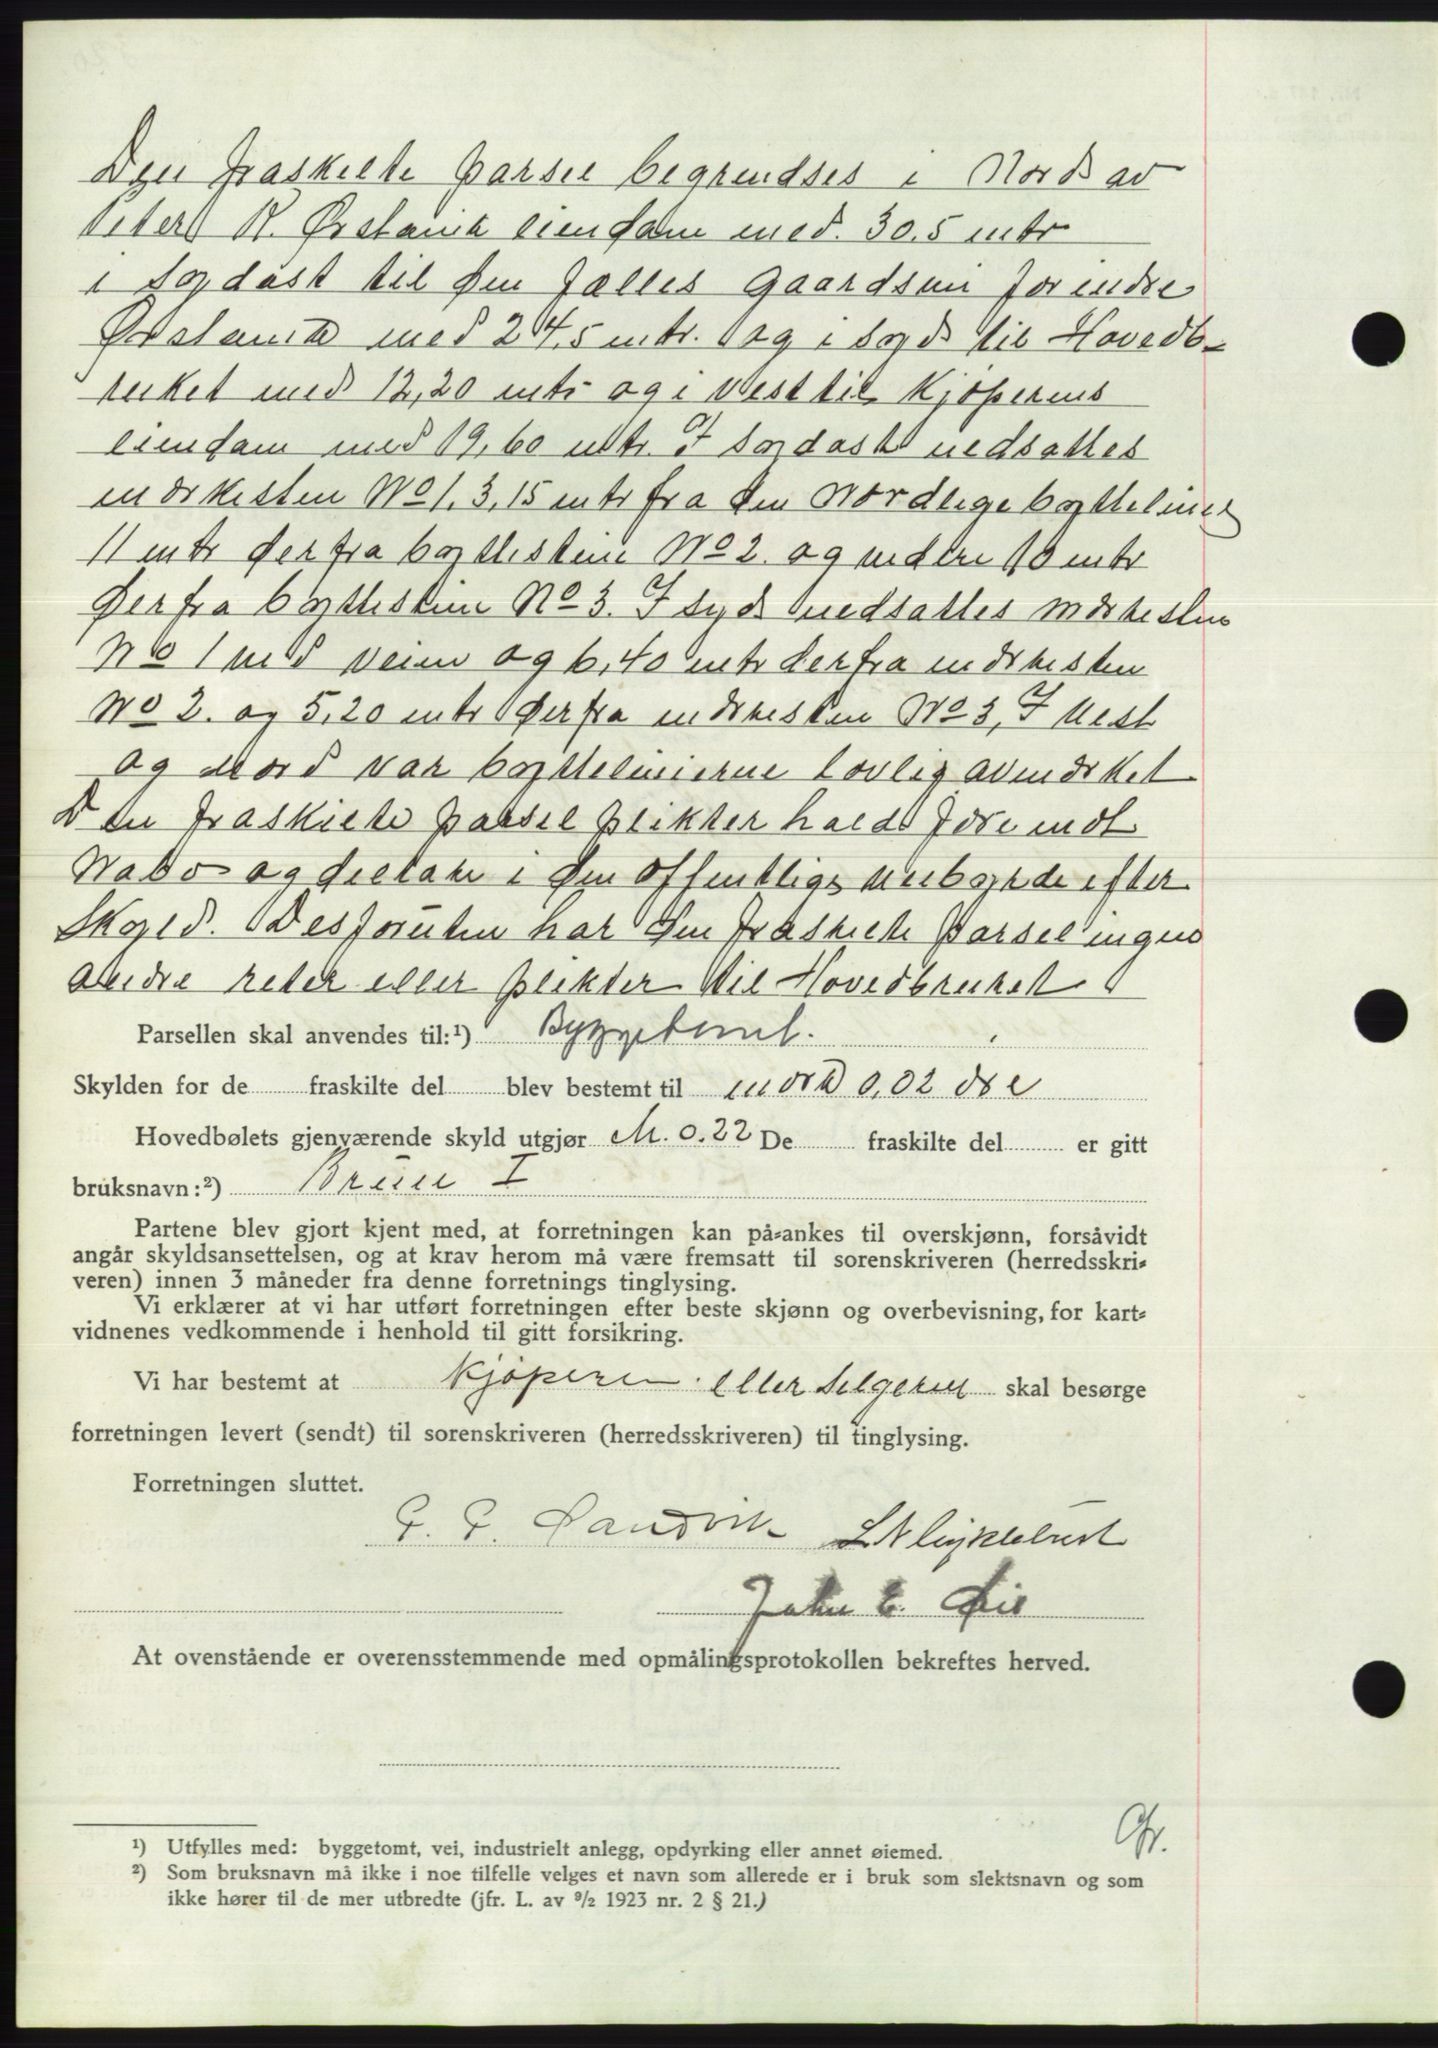 Den fraskilte parsel begrendses i Nord av
Peter R. Ørstavik eiendom med. 30.5 mtr
i sydøst til den fælles gaardsvei for indre
Ørstavik med 24,5 mtr. og i syd til Hovedb-
ruket med 12,20 mtr og i vest til kjøperens
eiendom med 19,60 mtr. I sydøst nedsattes
merkesten No 1. 3,15 mtr fra den Nordlige byttelinie
11 mtr derfra byttestein No 2. og videre 10 mtr
derfra byttestein No 3. I syd nedsattes merkesten
No 1 ved veien og 6,40 mtr derfra merkesten
No 2. og 5,20 mtr derfra merkesten No 3, I Vest
og Nord var byttelinierne lovlig avmerket
Den fraskilte parsel plikter hald gjære mot
Nabo og deltake i den offentlige veibyrde efter
Skyld. Desforuten har den fraskilte parsel ingen
andre reter eller plikter til Hovedbruket
Parsellen skal anvendes til:¹) Byggetomt.
Skylden for de fraskilte del blev bestemt til mark 0,02 øre
Hovedbølets gjenværende skyld utgjør M. 0.22 De fraskilte del er gitt
bruksnavn:²) I
Partene blev gjort kjent med, at forretningen kan på-ankes til overskjønn, forsåvidt
angår skyldsansettelsen, og at krav herom må være fremsatt til sorenskriveren (herredsskri-
veren) innen 3 måneder fra denne forretnings tinglysing.
Vi erklærer at vi har utført forretningen efter beste skjønn og overbevisning, for kart-
vidnenes vedkommende i henhold til gitt forsikring.
Vi har bestemt at kjøperen eller selgeren skal besørge
forretningen levert (sendt) til sorenskriveren (herredsskriveren) til tinglysing.
Forretningen sluttet.
G. G. Sandvik L N Myklebust
John E. Øie
At ovenstående er overensstemmende med opmålingsprotokollen bekreftes herved.
Gfr.
¹) Utfylles med: byggetomt, vei, industrielt anlegg, opdyrking eller annet øiemed.
²) Som bruksnavn må ikke i noe tilfelle velges et navn som allerede er i bruk som slektsnavn og som
ikke hører til de mer utbredte (jfr. L. av ⁹/₂ 1923 nr. 2 § 21.)